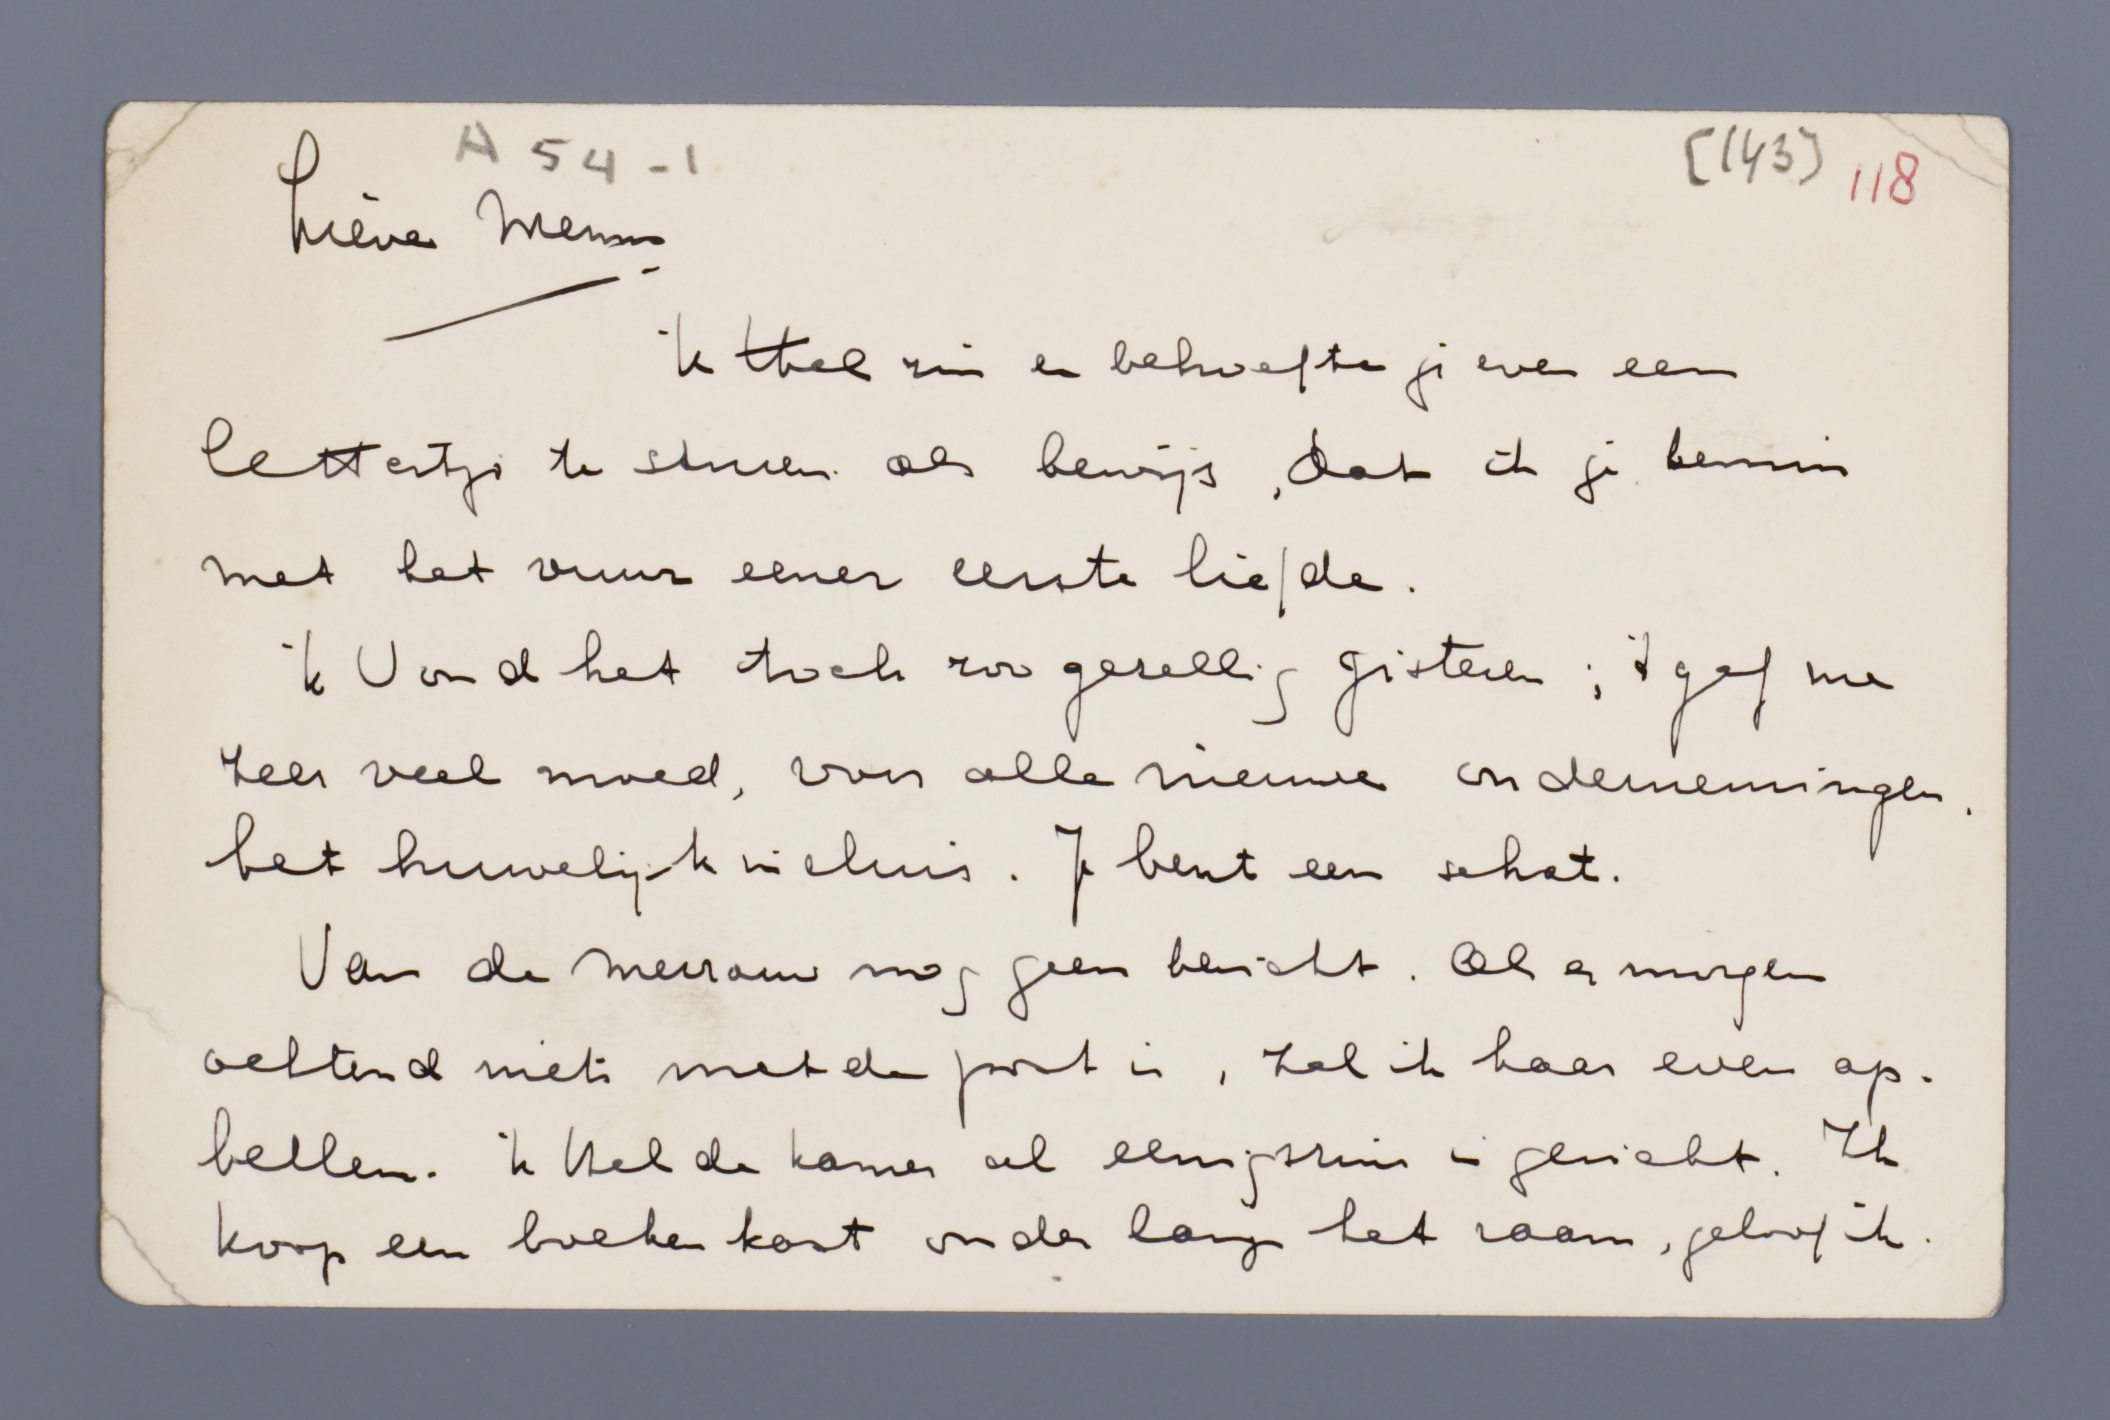 A 54-1
[143] 118
Lieve Menno
ik heb zin en behoefte je even een
lettertje te sturen als bewijs, dat ik je bemin
met het vuur eener eerste liefde.
ik vond het toch zoo gezellig gisteren; 't gaf me
zeer veel moed, voor alle nieuwe ondernemingen,
het huwelijk incluis. Je bent een schat.
Van de mevrouw nog geen bericht. Als er morgen
ochtend niets met de post is, zal ik haar even op-
bellen. ik heb de kamer al eenigszins ingericht. Ik
koop een boekenkast onder langs het raam, geloof ik.